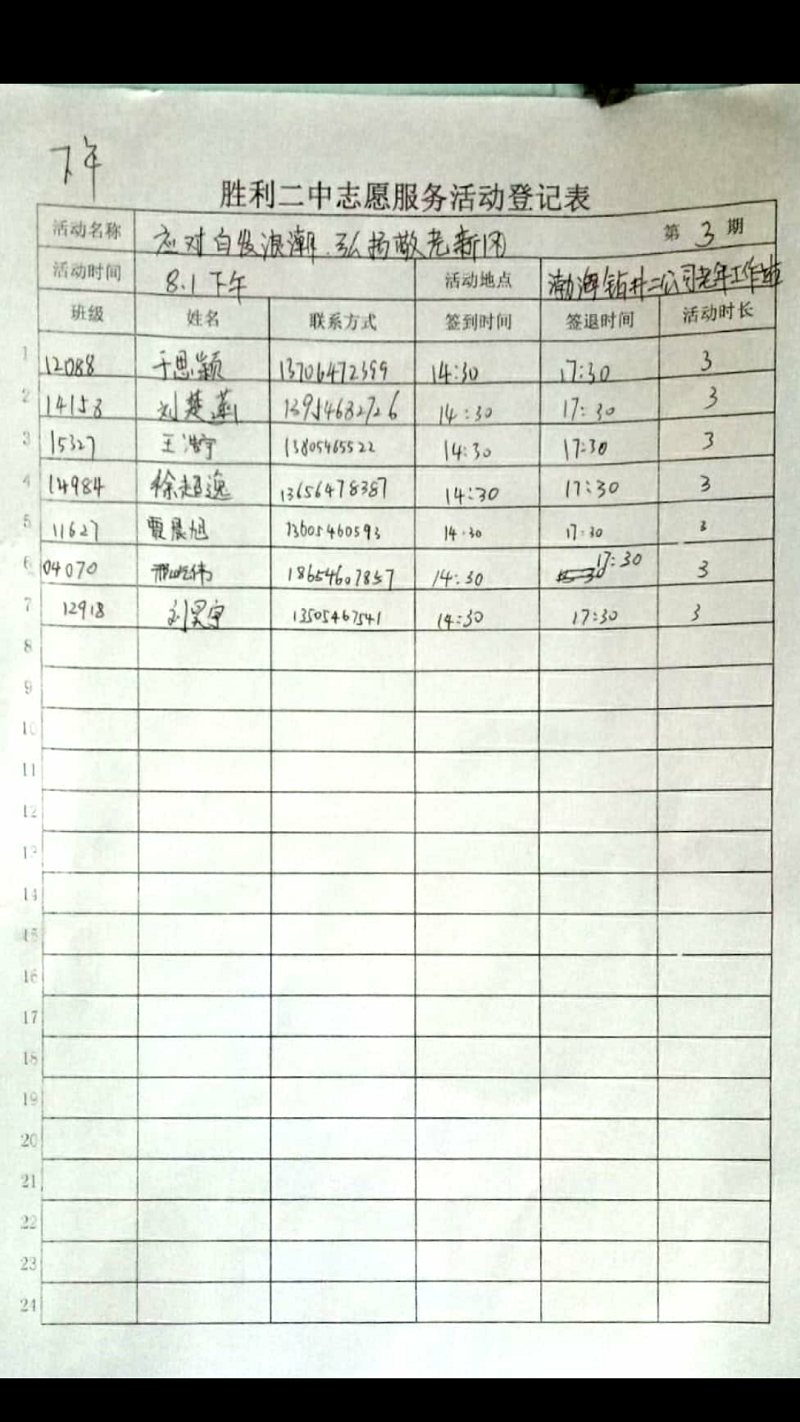 下午
胜利二中志愿服务活动登记表
活动名称 应对白发浪潮.弘扬敬老新风 第 3 期
活动时间 8.1下午 活动地点 渤海钻井二公司老年工作站
班级 姓名 联系方式 签到时间 签退时间 活动时长
1 12088 于思颖 13706472399 14:30 17:30 3
2 14158 刘楚 13954682726 14:30 17:30 3
3 15327 王浩宇 13805465522 14:30 17:30 3
4 14984 徐超逸 13656478387 14:30 17:30 3
5 11627 贾晨旭 13605460593 14:30 17:30 3
6 04070 18654607857 14:30 17:30 3
7 12918 刘昊宇 13505467541 14:30 17:30 3
8
9
10
11
12
13
14
15
16
17
18
19
20
21
22
23
24